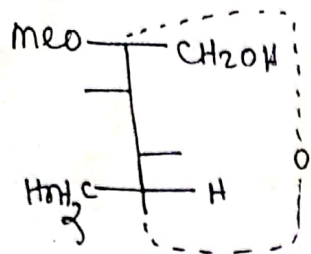 MeO CH2OH
O
HOH2C H